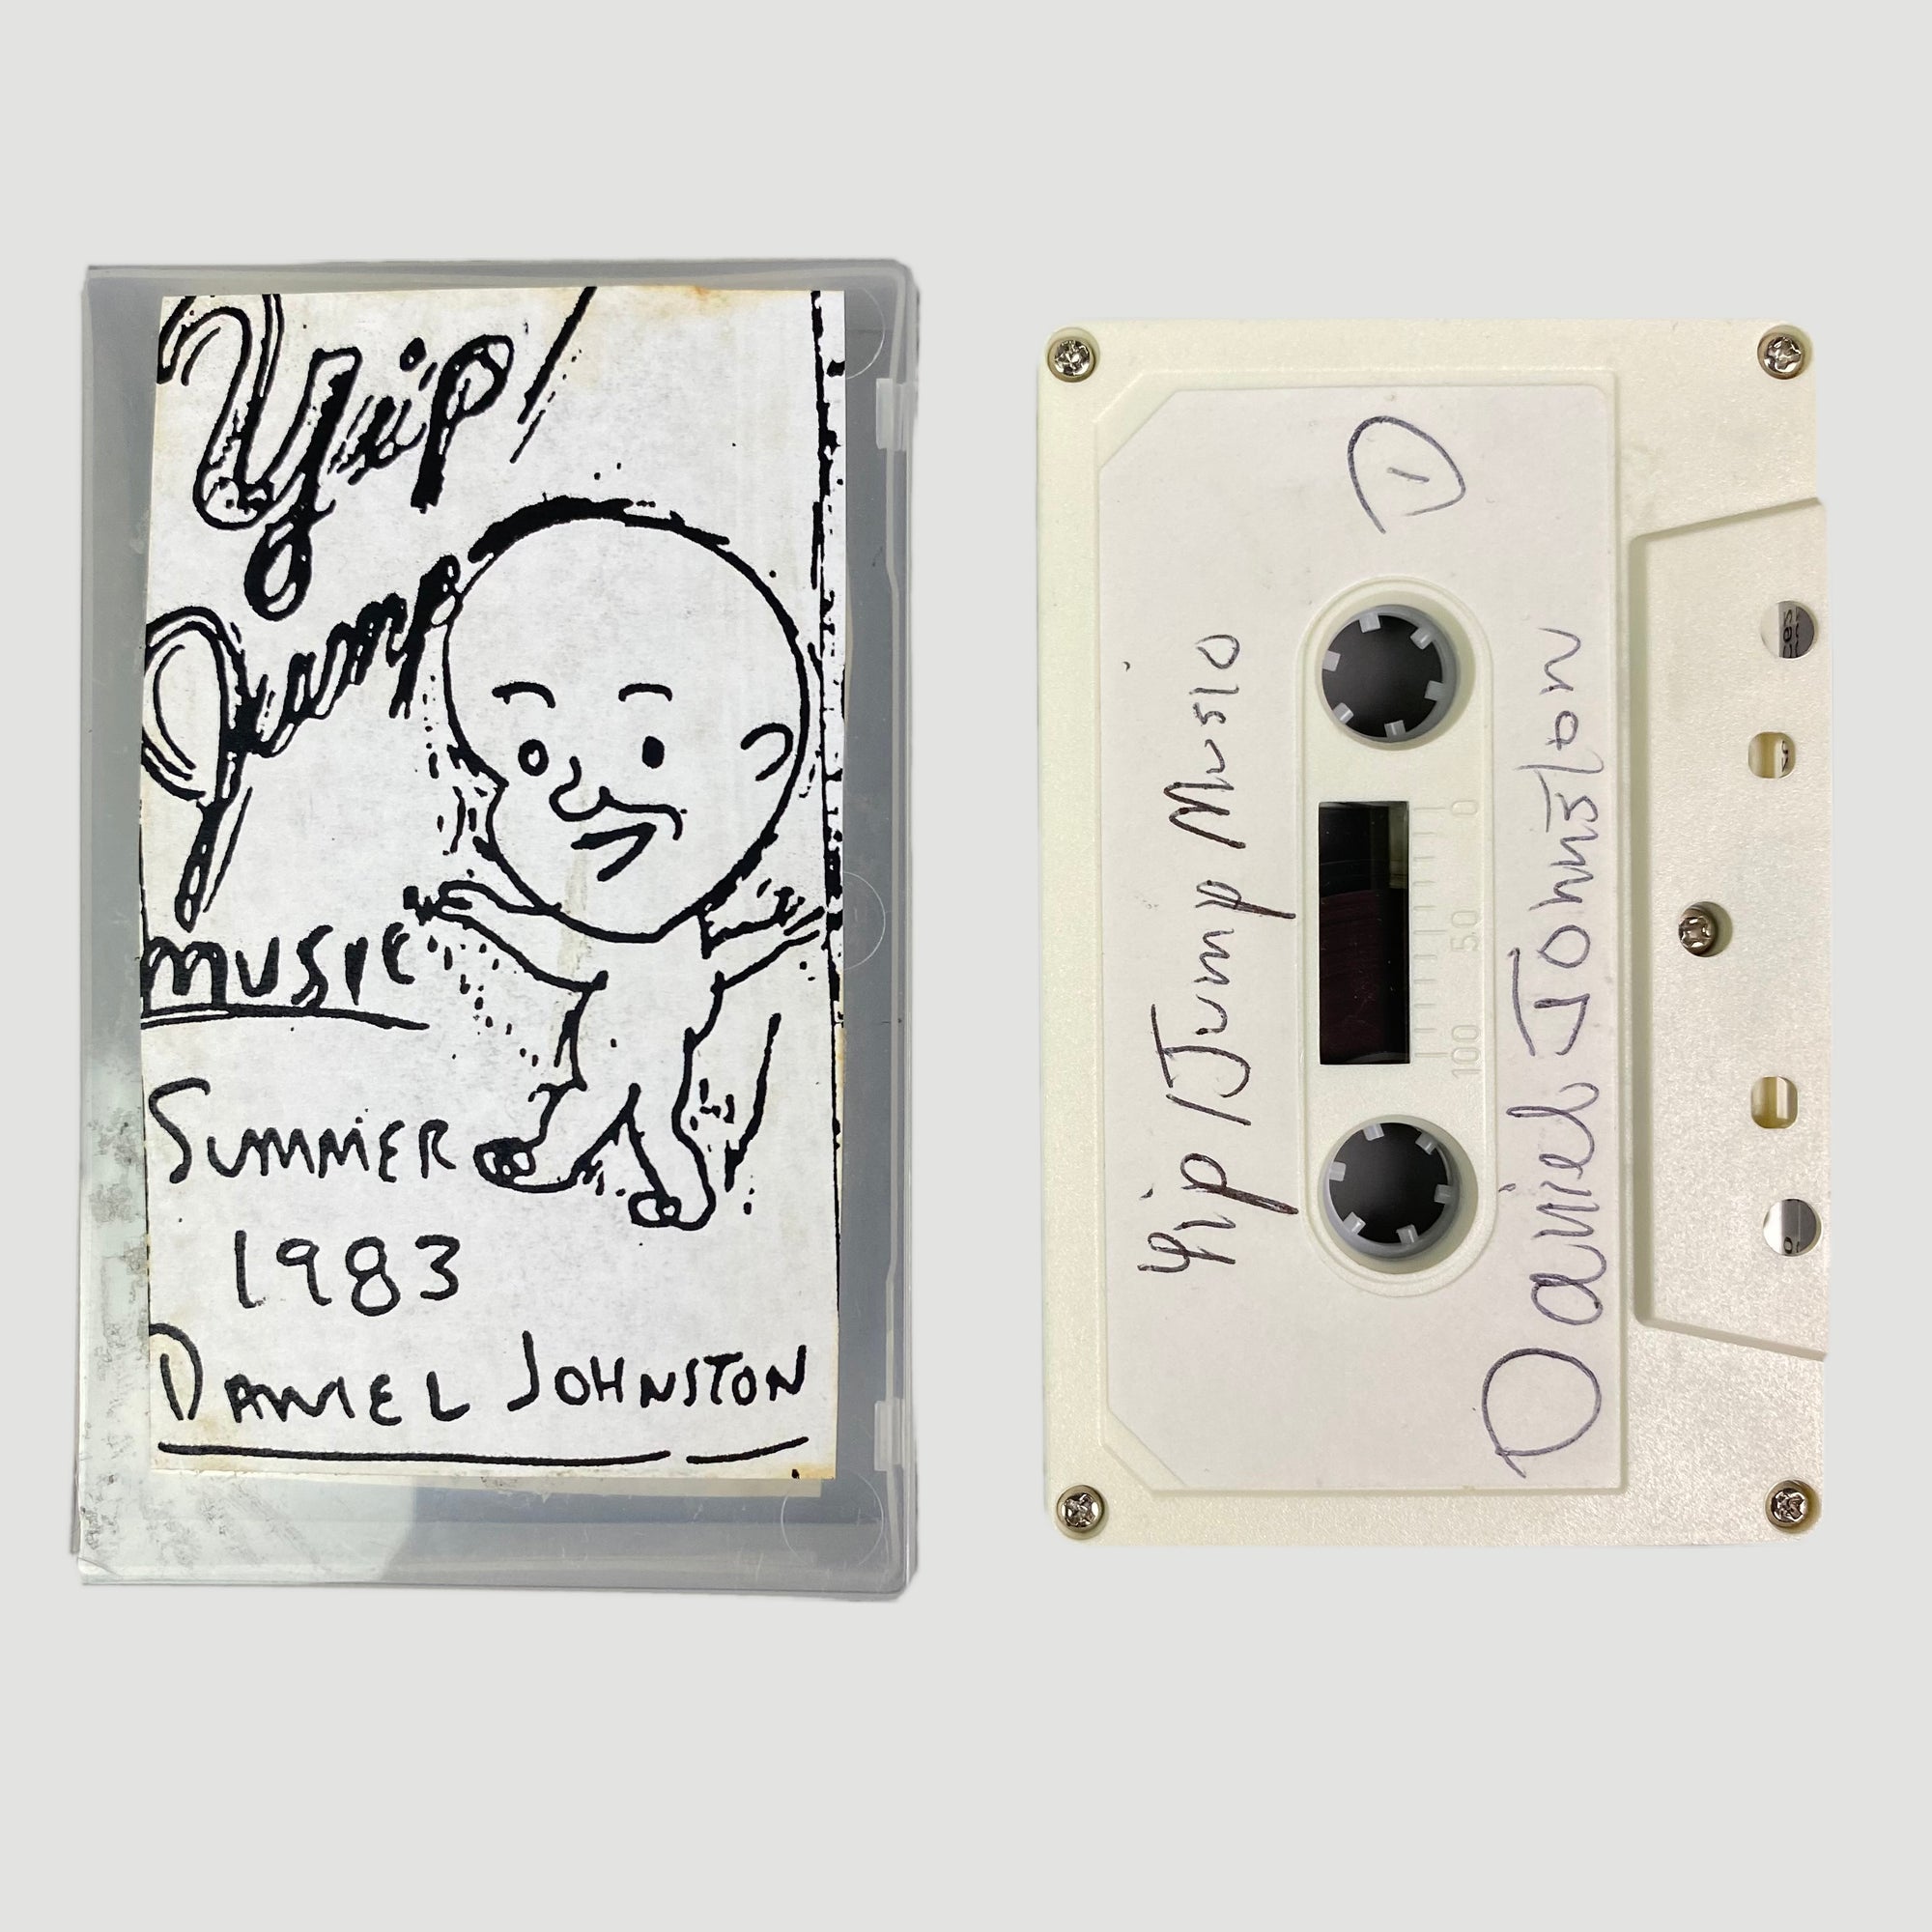 Yip/
Jump
MUSIC
SUMMER
1983
DANIEL JOHNSTON
1
Yip/Jump Music
0
50
100
Daniel Johnston